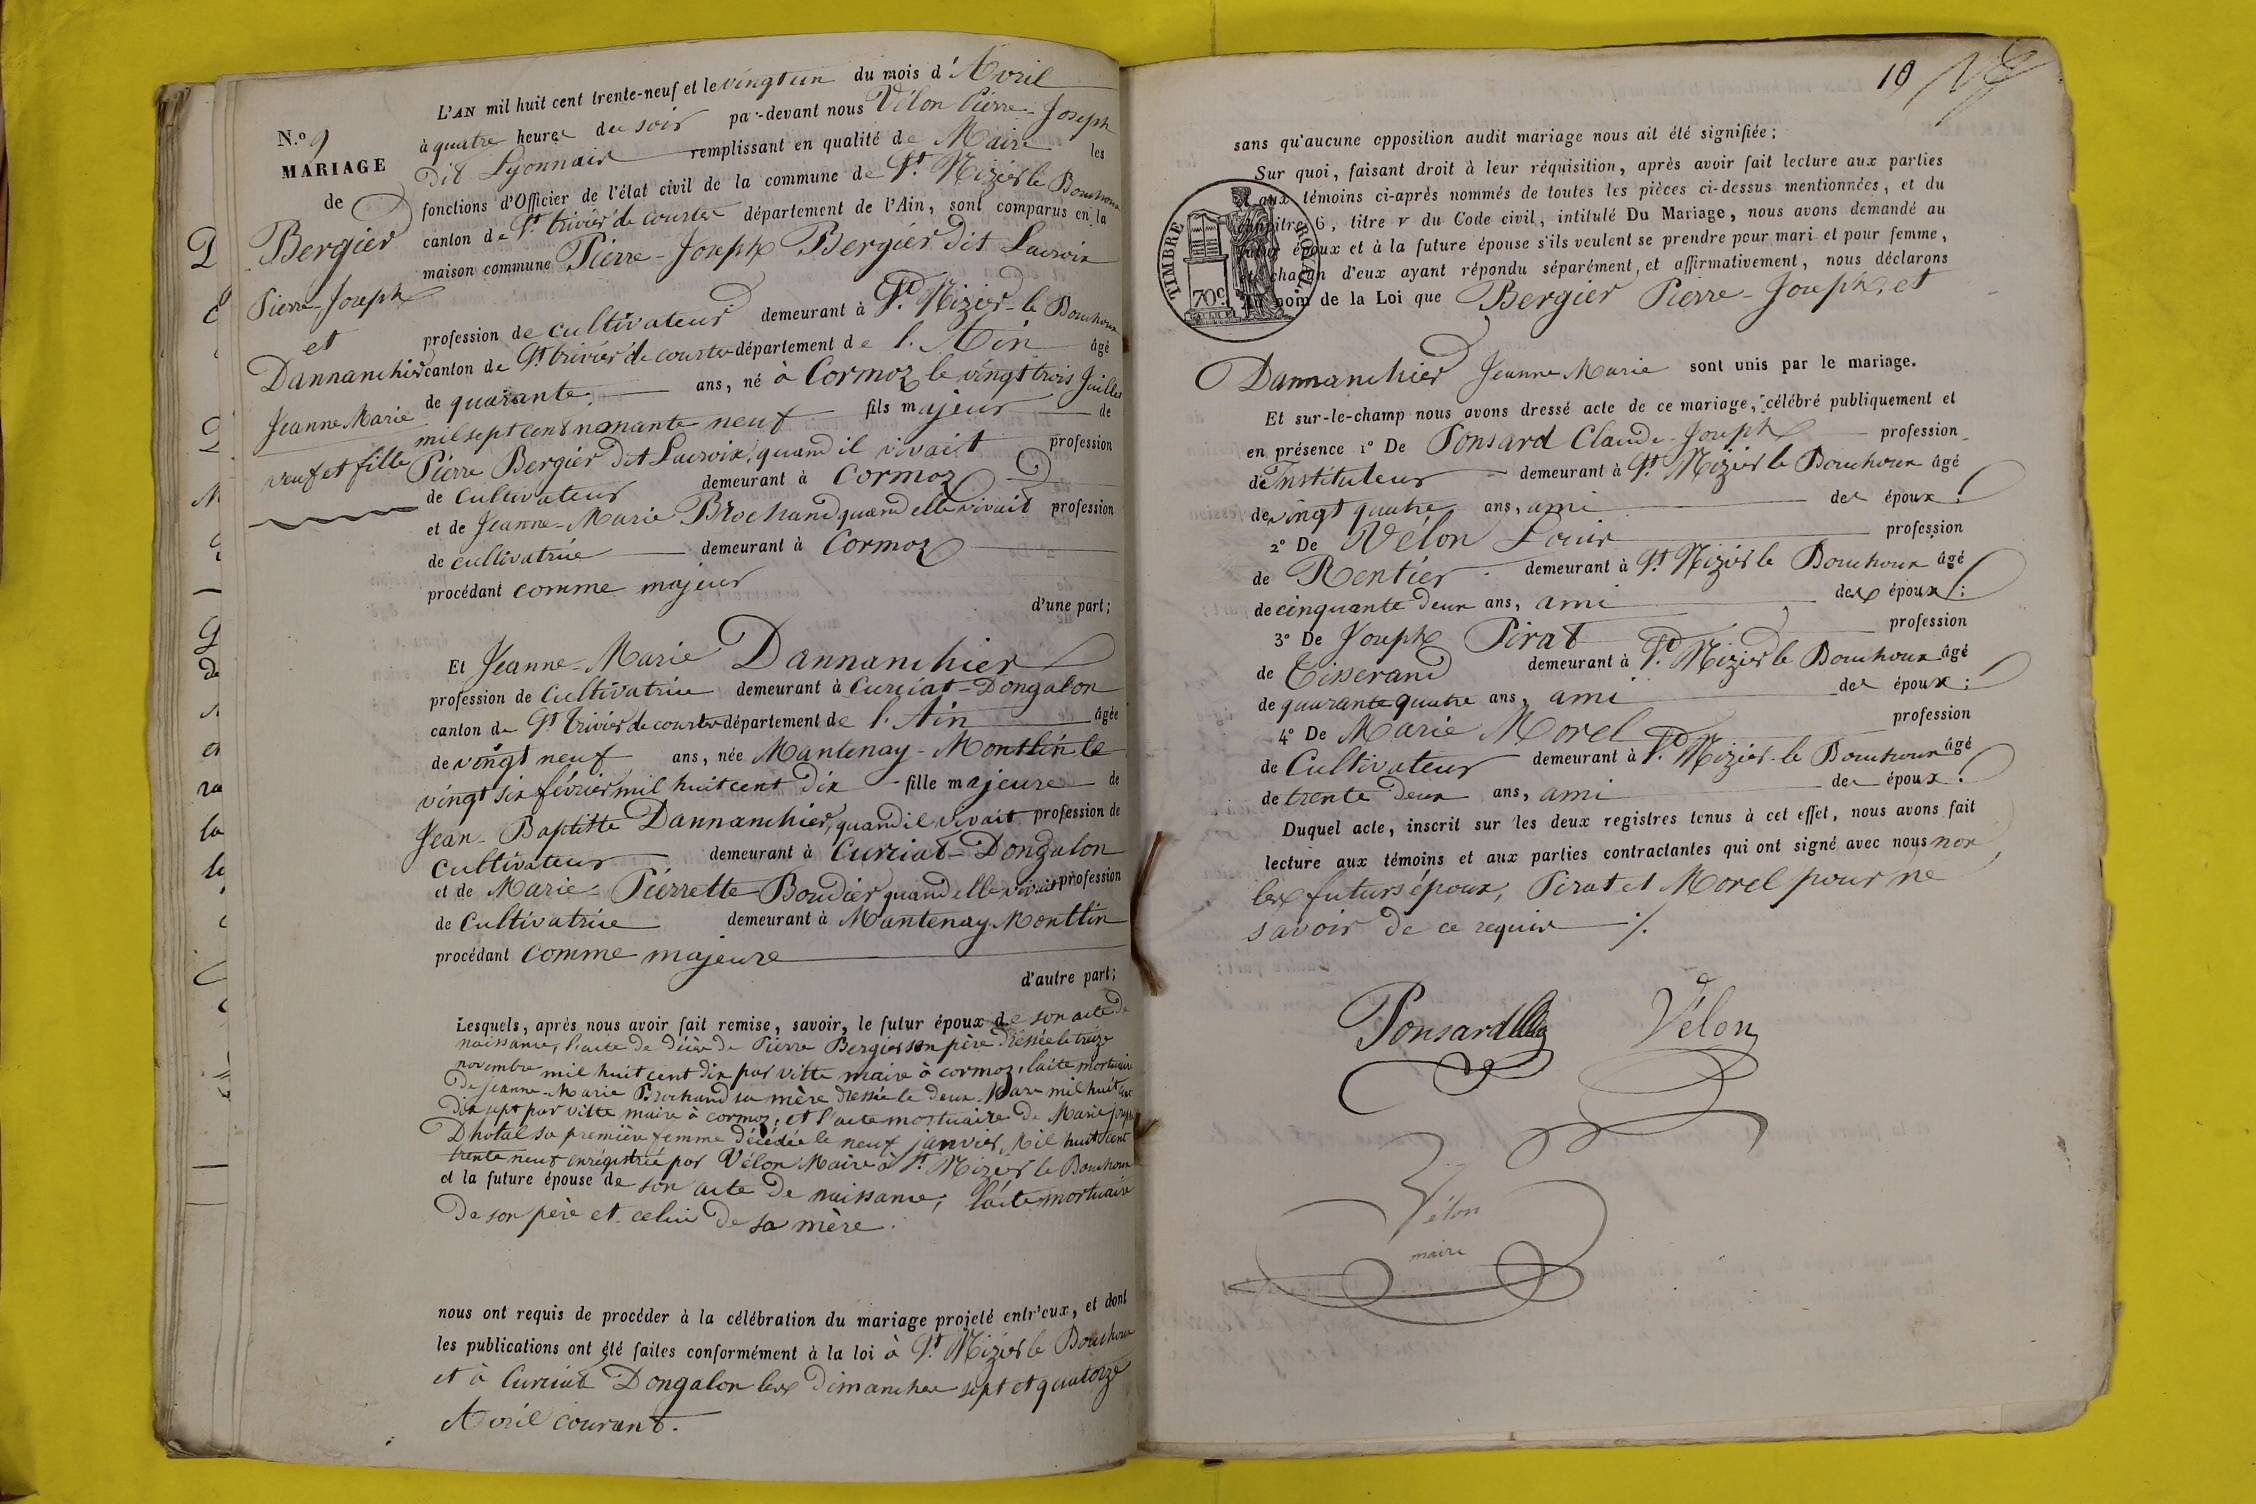 N.º 9
MARIAGE
de
Bergier
Pierre-Joseph
et
Dannanchier
Jeanne Marie
veuf et fille
L'AN mil huit cent trente-neuf et le vingt un du mois d'Avril
à quatre heures du soir par-devant nous Vélon Pierre-Joseph
Dit Lyonnais remplissant en qualité de Maire les
fonctions d'Officier de l'état civil de la commune de St. Nizier le Bouchoux
canton de St. trivier de courtes département de l'Ain, sont comparus en la
maison commune Pierre-Joseph Bergier dit Lacroix
profession de cultivateur demeurant à St. Nizier-le Bouchoux
canton de St. trivier de courtes département de l'Ain âgé
de quarante ans, né à Cormoz le vingt trois Juillet
mil sept cent nonante neuf fils majeur de
Pierre Bergier dit Lacroix, quand il vivait profession
de cultivateur demeurant à Cormoz
et de Jeanne-Marie Brochand quand elle vivait profession
de cultivatrice demeurant à Cormoz
procédant comme majeur
d'une part;
Et Jeanne-Marie Dannanchier
profession de cultivatrice demeurant à Curciat-Dongalon
canton de St. trivier de courtes département de l'Ain âgée
de vingt neuf ans, née Mantenay-Montlin le
vingt six février mil huit cent dix fille majeure de
Jean-Baptiste Dannanchier, quand il vivait profession de
cultivateur demeurant à Curciat-Dongalon
et de Marie-Pierrette Boudier quand elle vivait profession
de Cultivatrice demeurant à Mantenay Montlin
procédant comme majeure
d'autre part;
Lesquels, après nous avoir fait remise, savoir, le futur époux de son acte de
naissance, l'acte de décès de Pierre Bergier son père dressée le treize
novembre mil huit cent dix par vitte maire à cormoz, l'acte mortuaire
de Jeanne-Marie Brochand sa mère dressée le deux Mars mil huit cent
dix sept par vitte maire à cormoz, et l'acte mortuaire de Marie joseph
Dhotal sa première femme décédée le neuf janvier, Mil huit cent
trente neuf enrégistrée par Vélon Maire à St. Nizier le Bouchoux
et la future épouse de son acte de naissance, l'acte mortuaire
de son père et celui de sa mère.
nous ont requis de procéder à la célébration du mariage projeté entr'eux, et dont
les publications ont été faites conformément à la loi à St. Nizier le Bouchoux
et à Curciat Dongalon les dimanches sept et quatorze
Avril courant.
19
sans qu'aucune opposition audit mariage nous ait été signifiée;
Sur quoi, faisant droit à leur réquisition, après avoir fait lecture aux parties
et aux témoins ci-après nommés de toutes les pièces ci-dessus mentionnées, et du
chapitre 6, titre v du Code civil, intitulé Du Mariage, nous avons demandé au
futur époux et à la future épouse s'ils veulent se prendre pour mari et pour femme,
et chacun d'eux ayant répondu séparément, et affirmativement, nous déclarons
au nom de la Loi que Bergier Pierre-Joseph, et
TIMBRE ROYAL
70c
Dannanchier Jeanne Marie sont unis par le mariage.
Et sur-le-champ nous avons dressé acte de ce mariage, célébré publiquement et
en présence 1º De Ponsard Claude-Joseph profession
de Instituteur demeurant à St. Nizier le Bouchoux âgé
de vingt quatre ans, ami des époux;
2º De Vélon Louis profession
de Rentier demeurant à St. Nizier le Bouchoux âgé
de cinquante deux ans, ami des époux;
3º De Joseph Pirat profession
de Tisserand demeurant à St. Nizier le Bouchoux âgé
de quarante quatre ans, ami des époux;
4º De Marie Morel profession
de Cultivateur demeurant à St. Nizier-le Bouchoux âgé
de trente deux ans, ami des époux.
Duquel acte, inscrit sur les deux registres tenus à cet effet, nous avons fait
lecture aux témoins et aux parties contractantes qui ont signé avec nous non
les futurs époux, Pirat et Morel pour ne
savoir de ce requis ./.
Ponsard Vélon
Vélon
maire